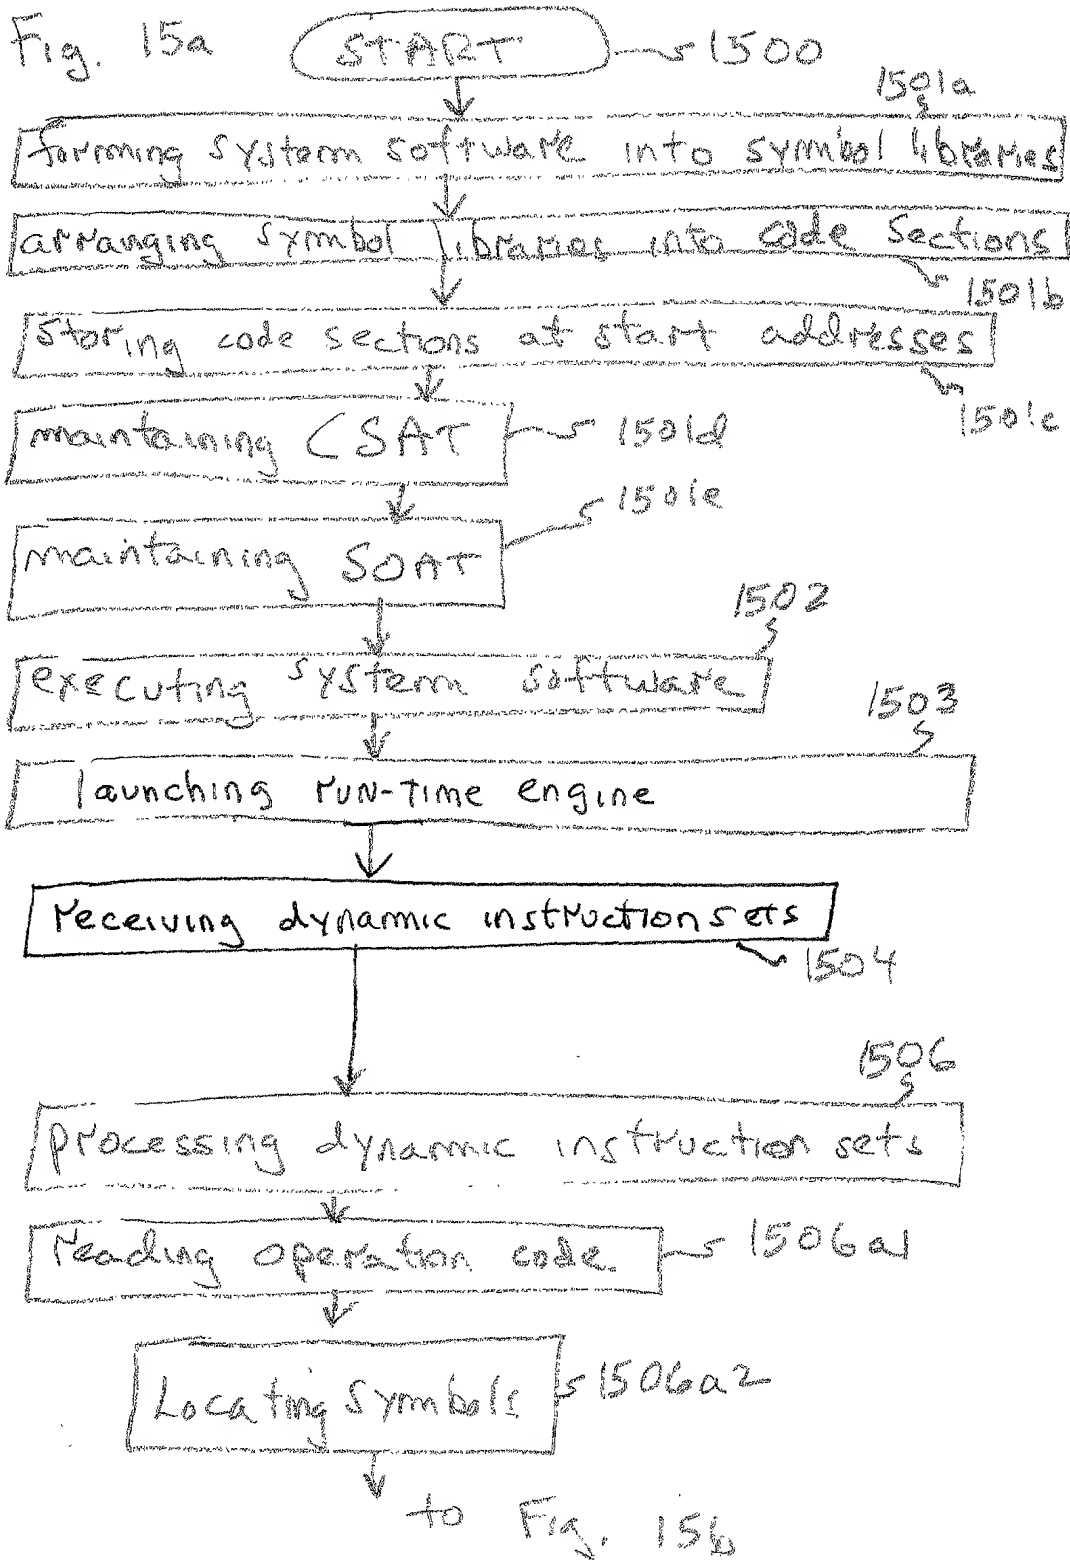 Fig. 15a
START 1500
1501a
forming system software into symbol libraries
arranging symbol libraries into code sections
1501b
storing code sections at start addresses
1501c
maintaining CSAT 1501d
1501e
maintaining SOAT
1502
executing system software
1503
launching run-time engine
receiving dynamic instruction sets
1504
1506
processing dynamic instruction sets
reading operation code 1506a1
Locating symbols 1506a2
to Fig. 15b